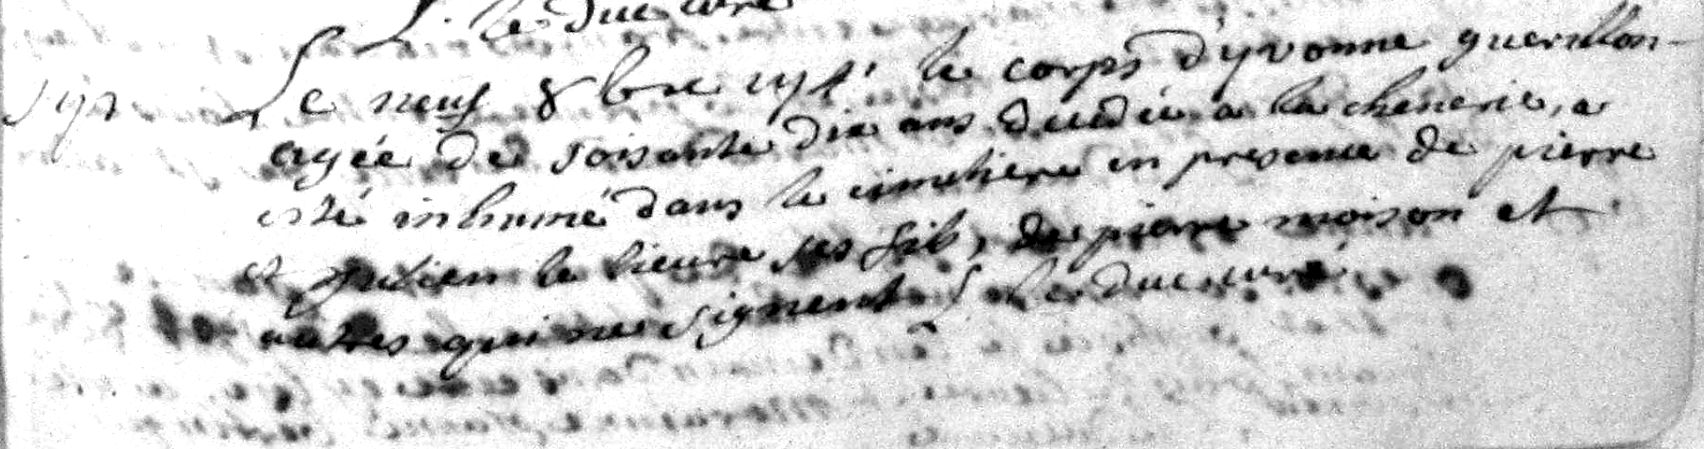 le duc curé
Le neuf 8bre le corps d'yvonne guerillon
agée de soisante dix ans decedée a la chenerie, a
esté inhumé dans le cimetiere en presence de pierre
et Julien le lieure ses fils, de pierre moison et
autres qui ne signent le duc curé